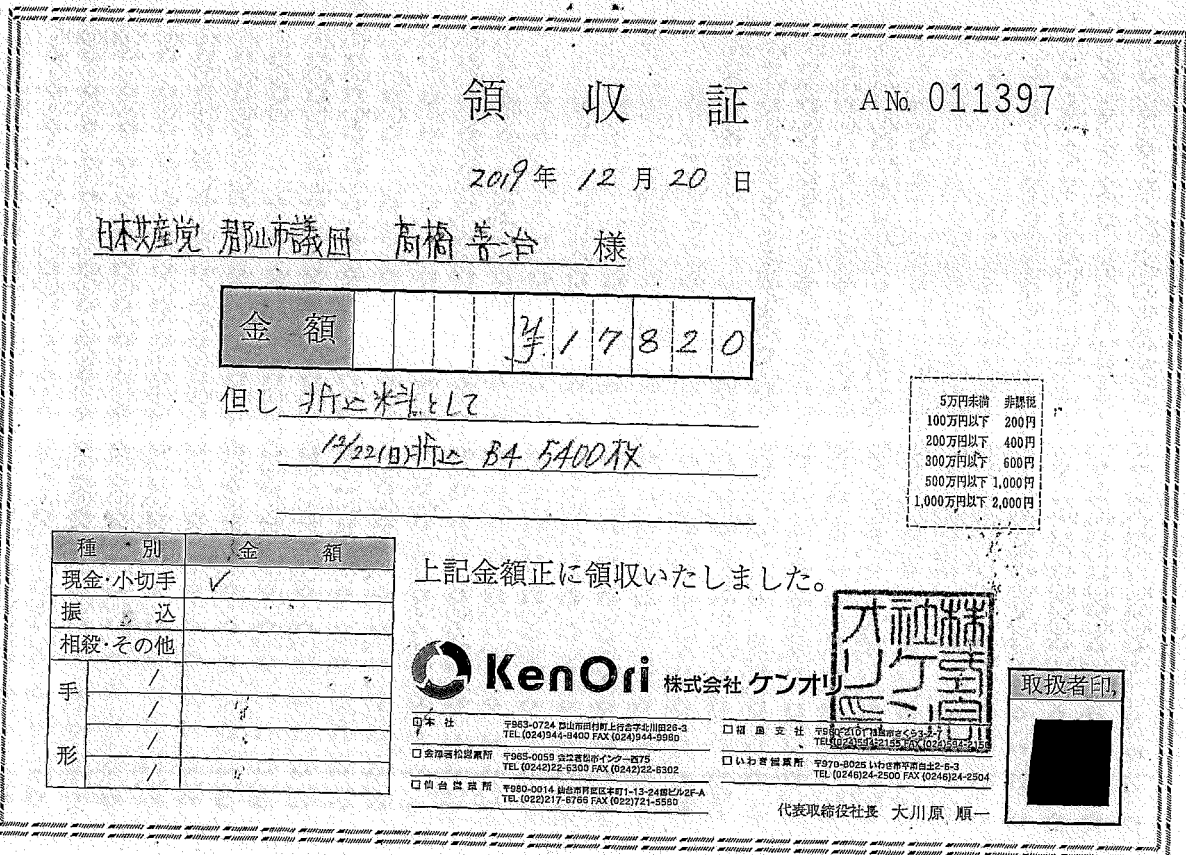 領収証
A No. 011397
2019年 12月 20日
日本共産党 郡山市議団 高橋善治 様
金額 ¥17820
但し 折込料として
12/22(日)折込 B4 5400枚
5万円未満 非課税
100万円以下 200円
200万円以下 400円
300万円以下 600円
500万円以下 1,000円
1,000万円以下 2,000円
種別 金額
現金・小切手 ✓
振込
相殺・その他
手形
/
/
/
/
上記金額正に領収いたしました。
KenOri 株式会社 ケンオリ
株式会社ケンオリ
取扱者印
本社 〒963-0724 郡山市田村町上行合字北川田26-3
TEL (024)944-8400 FAX (024)944-9980
会津若松営業所 〒965-0059 会津若松市インター西75
TEL (0242)22-6300 FAX (0242)22-6302
仙台営業所 〒980-0014 仙台市青葉区本町1-13-24 ビル2F-A
TEL (022)217-6766 FAX (022)721-5560
福島支社
いわき営業所 〒970-8025 いわき市平南白土2-6-3
TEL (0246)24-2500 FAX (0246)24-2504
代表取締役社長 大川原 順一